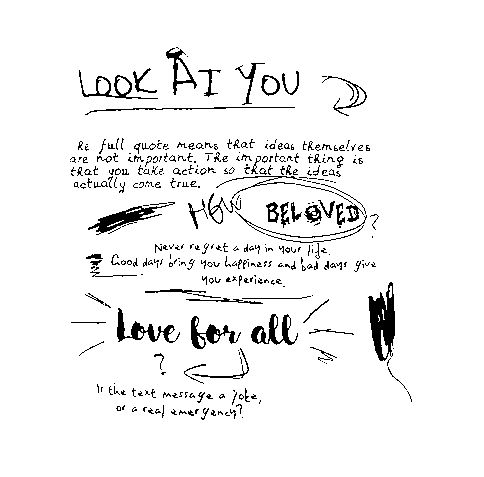 LOOK AT YOU
He full quote means that ideas themselves
are not important. The important thing is
that you take action so that the ideas
actually come true.
HEW BELOVED ?
Never regret a day in your life.
Good days bring you happiness and bad days give
you experience.
Love for all
?
Is the text message a joke,
or a real emergency?